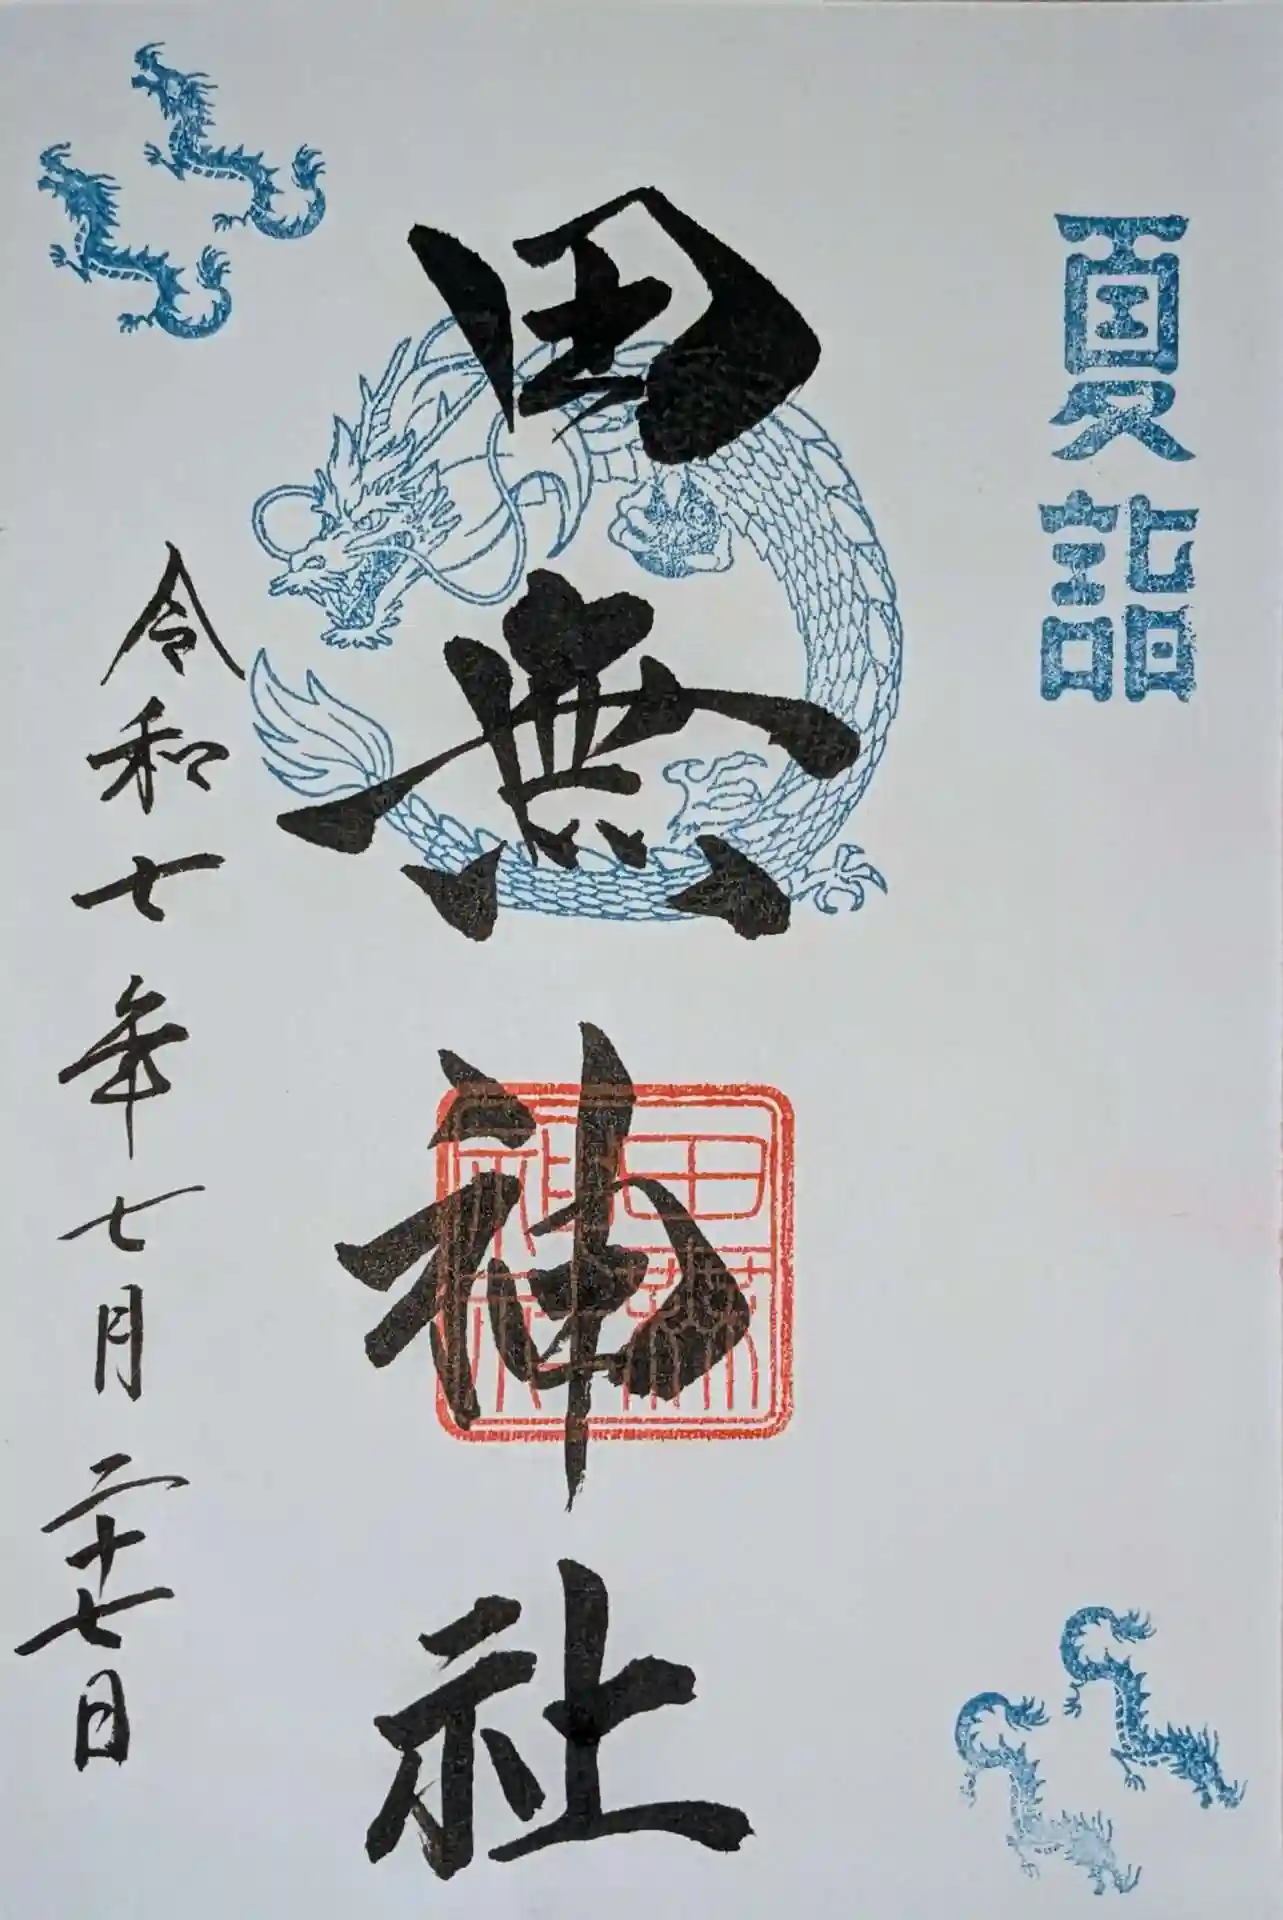 夏詣
田無神社
田無神社
令和七年七月二十七日